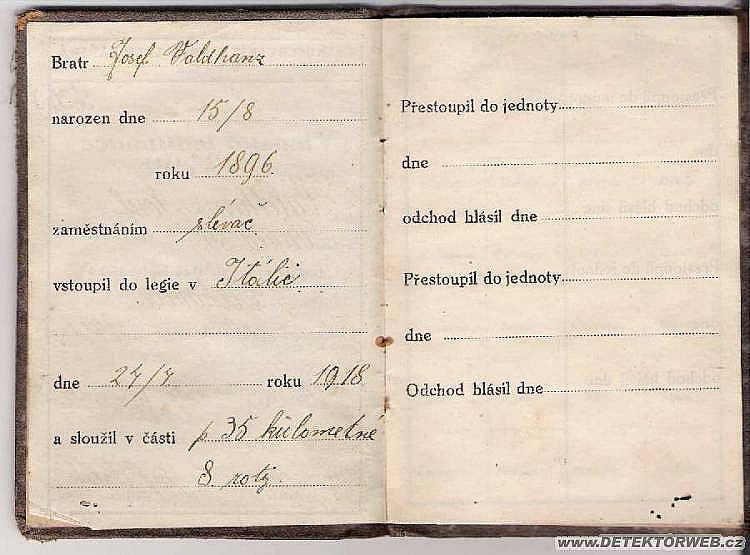 Bratr Josef Valdhanz
narozen dne 15/8
roku 1896.
zaměstnáním slévač.
vstoupil do legie v Itálii
dne 24/4 roku 1918
a sloužil v části p. 35 kulometné
8 roty.
Přestoupil do jednoty
dne
odchod hlásil dne
Přestoupil do jednoty
dne
Odchod hlásil dne
www.DETEKTORWEB.cz